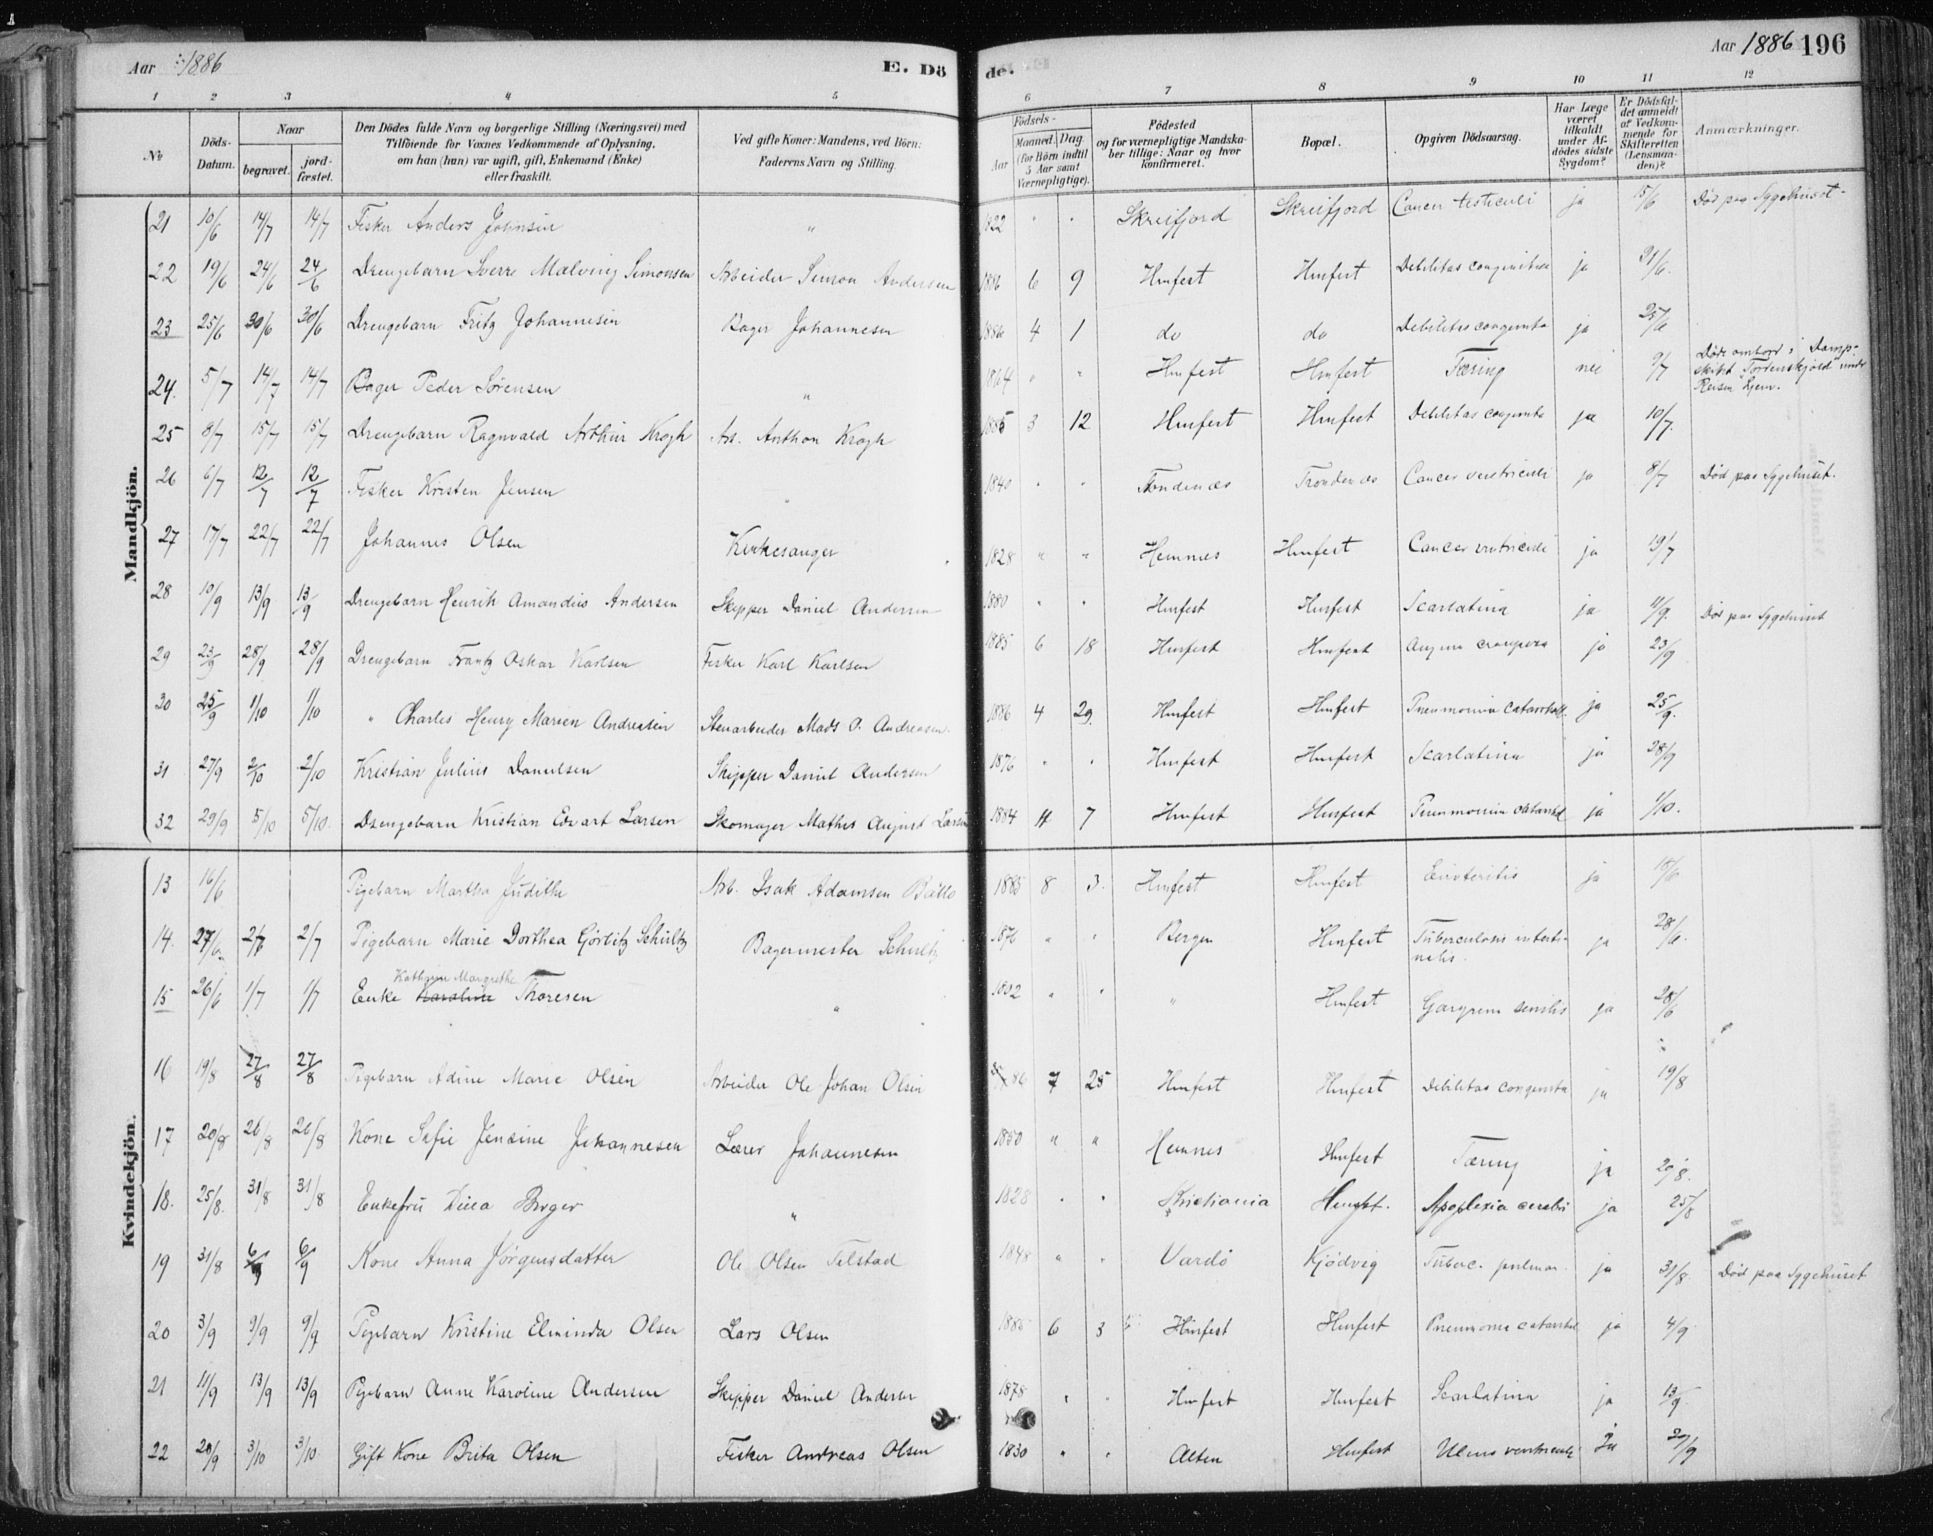 Aar 1886 E. Dö de. Aar 1886 196
1 2 3 4 5 6 7 8 9 10 11 12
No
Döds-Datum.
Naar begravet. jordfæstet.
Den Dödes fulde Navn og borgerlige Stilling (Næringsvei) med
Tilföiende for Voxnes Vedkommende af Oplysning,
om han (hun) var ugift, gift, Enkemand (Enke)
eller fraskilt.
Ved gifte Koner: Mandens, ved Börn:
Faderens Navn og Stilling.
Födsels-
Aar Maaned. Dag.
(for Börn indtil
5 Aar samt
Værnepligtige).
Födested
og for værnepligtige Mandskaber tillige: Naar og hvor
konfirmeret.
Bopæl.
Opgiven Dödsaarsag.
Har Læge været tilkaldt under Afdödes sidste Sygdom?
Er Dödsfaldet anmeldt af Vedkommende for Skifteretten (Lensmanden)?
Anmærkninger.
Mandkjön.
21 10/6 14/7 14/7 Fisker Anders Johnsen " 1822 " " Skreifjord Skreifjord Cancer testiculi ja 15/6 Död paa Sygehuset
22 19/6 24/6 24/6 Drengebarn Sverre Malving Simonsen Arbeider Simon Andersen 1886 6 9 Hmfest Hmfest Debilitas congenita ja 21/6.
23 25/6 30/6 30/6 Drengebarn Fritz Johannesen Bager Johannesen 1886 4 1 do do Debilitas congenita ja 25/6
24. 5/7 14/7 14/7 Bager Peder Sörensen " 1864 " " Hmfest Hmfest Tæring nei 9/7 Döde ombord i Dampskibet "Tordenskjold" under Reisen hjem.
25 8/7 15/7 15/7 Drengebarn Ragnvald Arthur Krogh Arb. Anthon Krogh 1885 3 12 Hmfest Hmfest Debilitas congenita ja 10/7.
26 6/7 12/7 12/7 Fisker Kristen Jensen " 1840 " " Trondenæs Trondenæs Cancer ventriculi ja 8/7 Död paa Sygehuset.
27 17/7 22/7 22/7 Johannes Olsen Kirkesanger 1828 " " Hemnes Hmfest Cancer ventriculi ja 19/7
28 10/9 13/9 13/9 Drengebarn Henrik Amandus Andersen Skipper Daniel Andersen 1880 " " Hmfest Hmfest Scarlatina ja 11/9. Död paa Sygehuset
29 23/9 28/9 28/9 Drengebarn Frantz Oskar Karlsen Fisker Karl Karlsen 1885 6 18 Hmfest Hmfest Angina crouposa ja 23/9
30 25/9 1/10 1/10 " Charles Henry Marien Andreasen Stenarbeider Mads O. Andreasen. 1886 4 29. Hmfest Hmfest Pneumonia catarrhal. ja 25/9.
31 27/9 2/10 2/10 Kristian Julius Danielsen Skipper Daniel Andersen 1876 " " Hmfest Hmfest Scarlatina ja 28/9
32 29/9 5/10 5/10. Drengebarn Kristian Edvart Larsen Skomager Mathis August Larsen 1884 11 7 Hmfest Hmfest Pneumonia catarrhal ja 1/10.
Kvindekjön.
13 16/6 Pigebarn Martha Judithe Arb. Isak Adamsen Ballo 1885 8 3. Hmfest Hmfest Enteritis ja 18/6
14. 27/6 2/7 2/7 Pigebarn Marie Dorthea Görlitz Schultz Bagermester Schultz 1876 " " Bergen Hmfest Tuberculosis intestinalis. ja 28/6.
15 26/6 1/7 1/7 Enke Karoline Kathrine Margrethe Thoresen " 1802 " " " Hmfest Gangrena senilis ja 28/6
16 19/8 27/8 27/8 Pigebarn Adine Marie Olsen Arbeider Ole Johan Olsen 86 7 25 Hmfest Hmfest Debilitas congenita ja 19/8
17 20/8 26/8 26/8 Kone Sofie Jensine Johannesen Lærer Johannesen 1850 " " Hemnes Hmfest Tæring ja 20/8.
18. 25/8. 31/8 31/8 Enkefru Dina Berger " 1828 " " Kristiania Hmfst. Apoplexia cerebri ja 25/8
19 31/8 6/9 6/9 Kone Anna Jörgensdatter Ole Olsen Telstad 1848 " " Vardö Kjödvig Tuberc. pulmon. ja 31/8 Död paa Sygehuset
20 3/9 9/9 9/9 Pigebarn Kristine Elminda Olsen Lars Olsen 1885 6 3 Hmfest Hmfest Pneumonia catarrhal ja 4/9
21 11/9 13/9 13/9 Pigebarn Anne Karoline Andersen Skipper Daniel Andersen 1878 " " Hmfest Hmfest Scarlatina ja 13/9.
22 20/9 3/10 3/10 Gift Kone Brita Olsen Fisker Andreas Olsen 1830 " " Alten Hmfest Ulcus ventriculi Ja 27/9